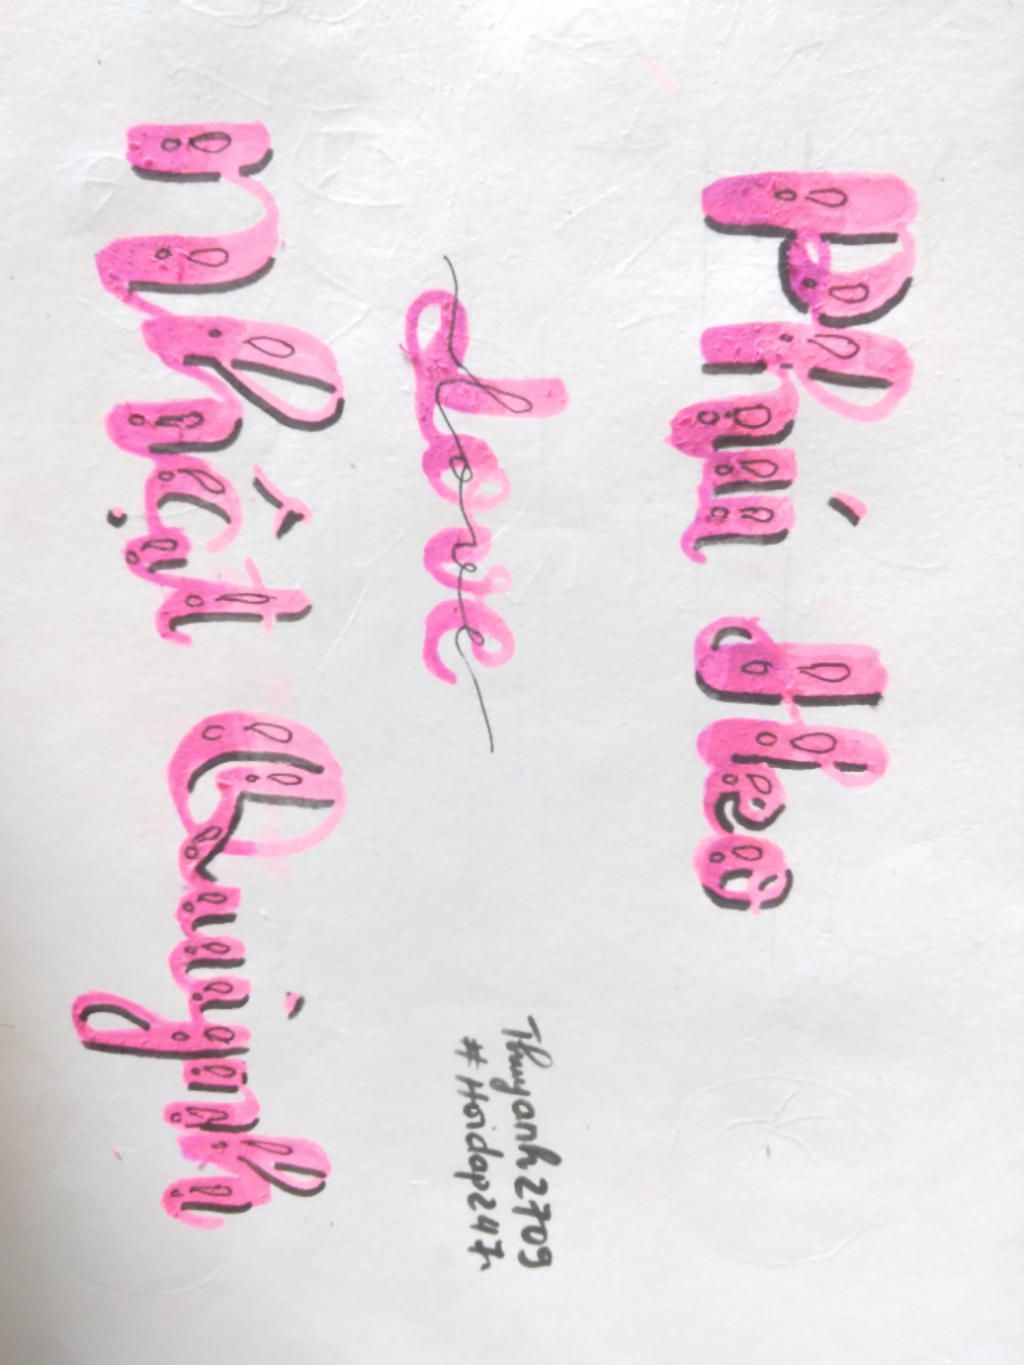 dheo
Love
Nhật Quýnh
Thuyanh2709
#Hoidap247